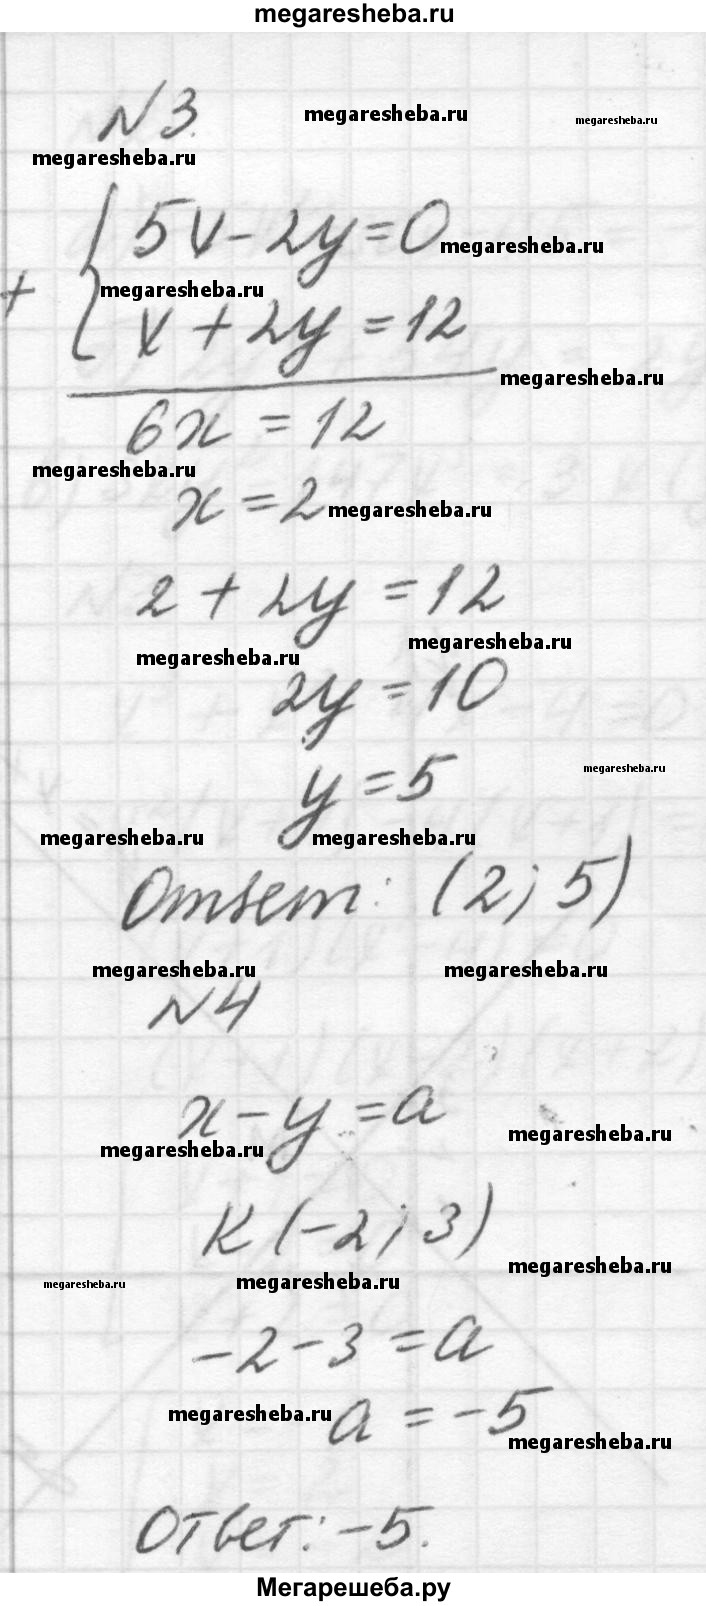 megaresheba.ru
N3.
megaresheba.ru
megaresheba.ru
megaresheba.ru
5x-2y=0
megaresheba.ru
+
megaresheba.ru
x+2y=12
megaresheba.ru
6x=12
megaresheba.ru
x=2
megaresheba.ru
2+2y=12
megaresheba.ru
megaresheba.ru
2y=10
y=5
megaresheba.ru
megaresheba.ru
megaresheba.ru
Ответ: (2; 5)
megaresheba.ru
megaresheba.ru
N4
x-y=a
megaresheba.ru
megaresheba.ru
K(-2; 3)
megaresheba.ru
megaresheba.ru
megaresheba.ru
-2-3=a
megaresheba.ru
a=-5
megaresheba.ru
Ответ: -5.
Мегарешеба.ру